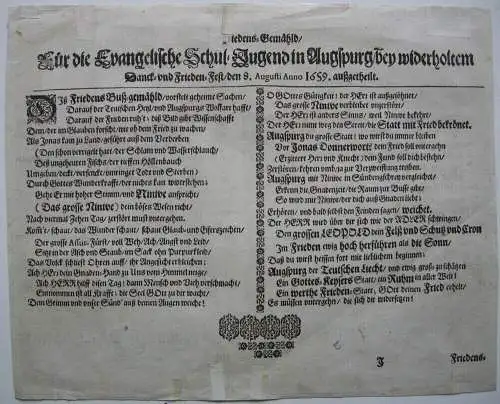 Friedens-Gemähld/
Für die Evangelische Schul-Jugend in Augspurg bey widerholtem
Danck-und Frieden-Fest/den 8. Augusti Anno 1659. außgetheilt.
Diß Friedens Buß gemähld/vorstelt geheime Sachen/
Darauf der Teutschen Heyl/und Augspurgs Wolfart hafft/
Darauf der Frieden ruht: diß Bild gibt Wissenschafft
Dem/der im Glauben forscht/wie ob dem Fried zu wachen/
Als Jonas kam zu Land/geführt auß dem Verderben
(Den schon verriegelt hatt/der Schlam und Wasserschlauch/
Deß ungeheuren Fisches/der tieffen Höllenbauch
Umgeben/deckt/versenckt/umringet Todt und Sterben)
Durch Gottes Wunderkrafft/der nichts kan widerstehen:
Geht Er mit hoher Stimm/und Ninive anspricht/
(Das grosse Ninive) dein bösen Wesen nicht/
Nach viermal Zehen Tag/zerstört must untergehen.
Kom't/schaut/das Wunder schaut/schaut Glaub-und Eyferzeichen/
Der grosse Assur Fürst/voll Weh/Ach/Angst und Leid/
Sitzt in der Asch und Staub/im Sack ohn Purpurkleid/
Das Volk schreyt Ohren auff/ihr Angesicht erbleichen:
Ach HErr dein Gnaden-Hand zu Uns vom Himmel neige/
Ach HERR hilff disen Tag/dann Mensch und Vieh verschmacht/
Eingnommen ist all Krafft: die Seel GOtt zu dir wacht/
Dein Grimm und unser Sünd auß deinen Augen weiche!
O GOttes Gütigkeit: der HErr ist außgesöhnet/
Das grosse Ninive verbleibet unzerstört/
Der HErr ist anders Sinns/weil Ninive bekehrt/
Der HErr nunn weg den Streit/die Statt mit Fried bekrönet.
Augspurg du grosse Statt: wo wurdest du immer bleiben
Vor Jonas Donnerwort: dem Fried soll untergehn
(Erzittert Herr und Knecht/dem Fund soll dich bestehn/
Zerstören/kehren umb/ja zur Verzweifflung treiben.
Augspurg mit Ninive in Sündengleichheit vergleichet/
Erkenn die Gnadenzeit/die Raum zur Busse gibt/
So wird mit Ninive/der dich auß Gnaden liebt:
Erhören/und bald selbst dem Frieden sagen/weichet.
Der HERR wird über dir sich wie der ADLER schwingen/
Den grossen LEOPOLD dein Felß und Schutz und Cron
Im Frieden ewig hoch herführen als die Sonn/
Daß du wirst heissen fort mit lieblichem beginnen:
Augspurg der Teutschen Liecht/und ewig groß zuschätzen
Ein Gottes-Keysers Statt/ein Ruhm in aller Welt!
Ein werthe Frieden-Statt/GOtt deinen Fried erhelt/
Es müssen untergehn/die sich dir widersetzen!
J
Friedens-